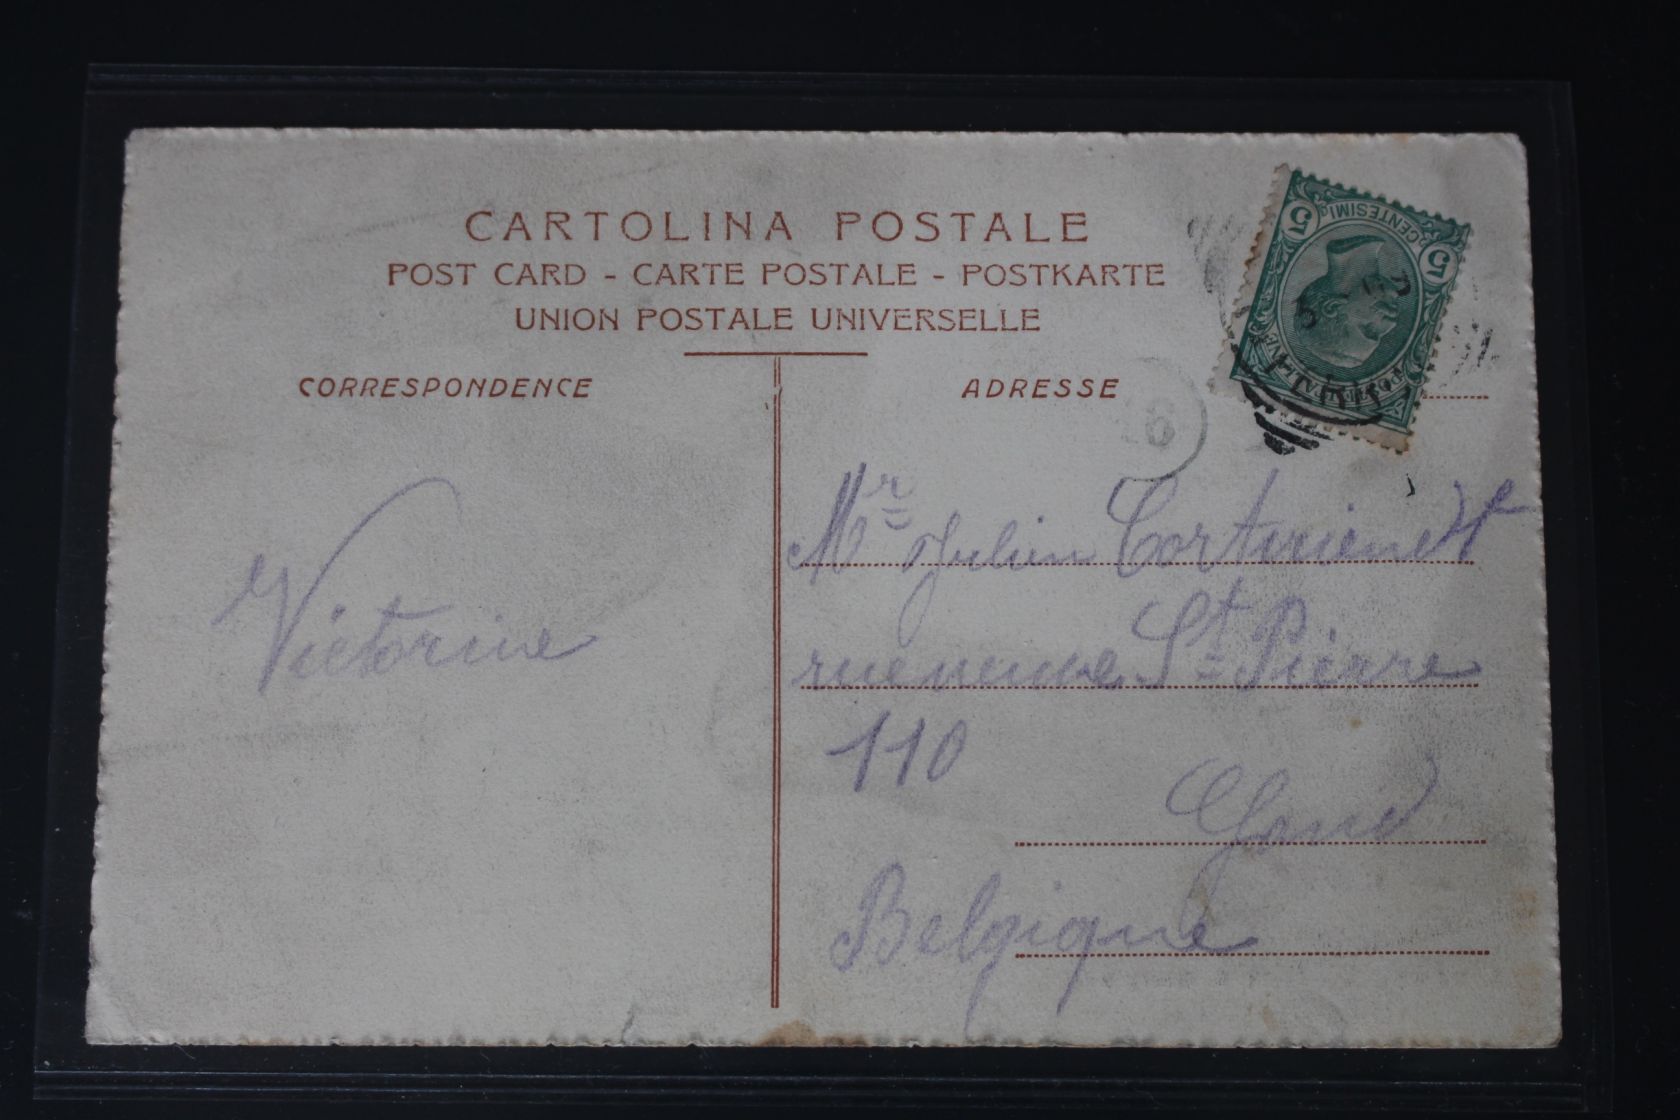 CARTOLINA POSTALE
POST CARD - CARTE POSTALE - POSTKARTE
UNION POSTALE UNIVERSELLE
CORRESPONDENCE
ADRESSE
5 CENTESIMI 5
Victorine
Mr Julien
rue neuve St Pierre
110
Gand
Belgique